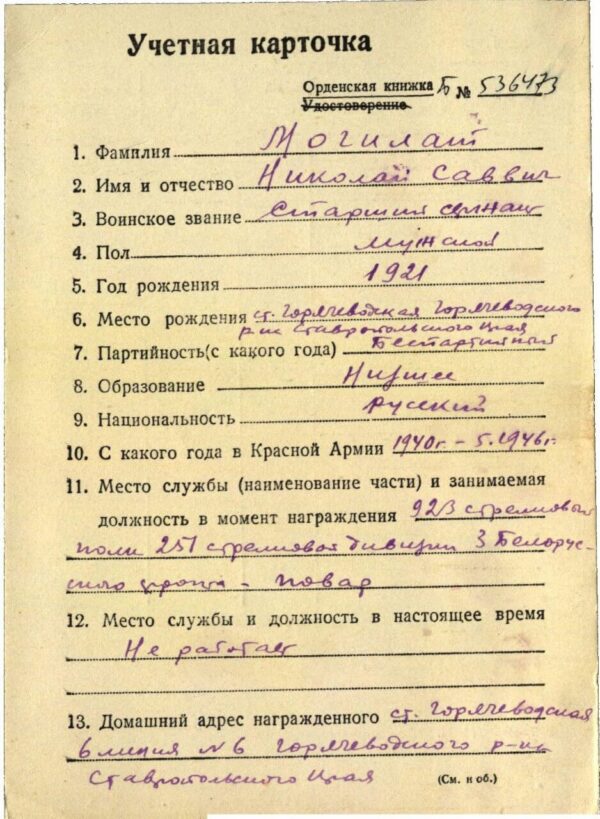 Учетная карточка
Орденская книжка Б № 536473
Удостоверение
1. Фамилия Могилат
2. Имя и отчество Николай Саввич
3. Воинское звание Старший сержант
4. Пол мужской
5. Год рождения 1921
6. Место рождения ст. Горячеводская Горячеводского
р-на Ставропольского края
7. Партийность(с какого года) Беспартийный
8. Образование Низшее
9. Национальность русский
10. С какого года в Красной Армии 1940г - 5.1946г.
11. Место службы (наименование части) и занимаемая
должность в момент награждения 923 стрелковый
полк 251 стрелковой дивизии 3 Белорус-
ского фронта - повар
12. Место службы и должность в настоящее время
Не работает
13. Домашний адрес награжденного ст. Горячеводская
6 линия №6 Горячеводского р-на
Ставропольского края
(См. н об.)